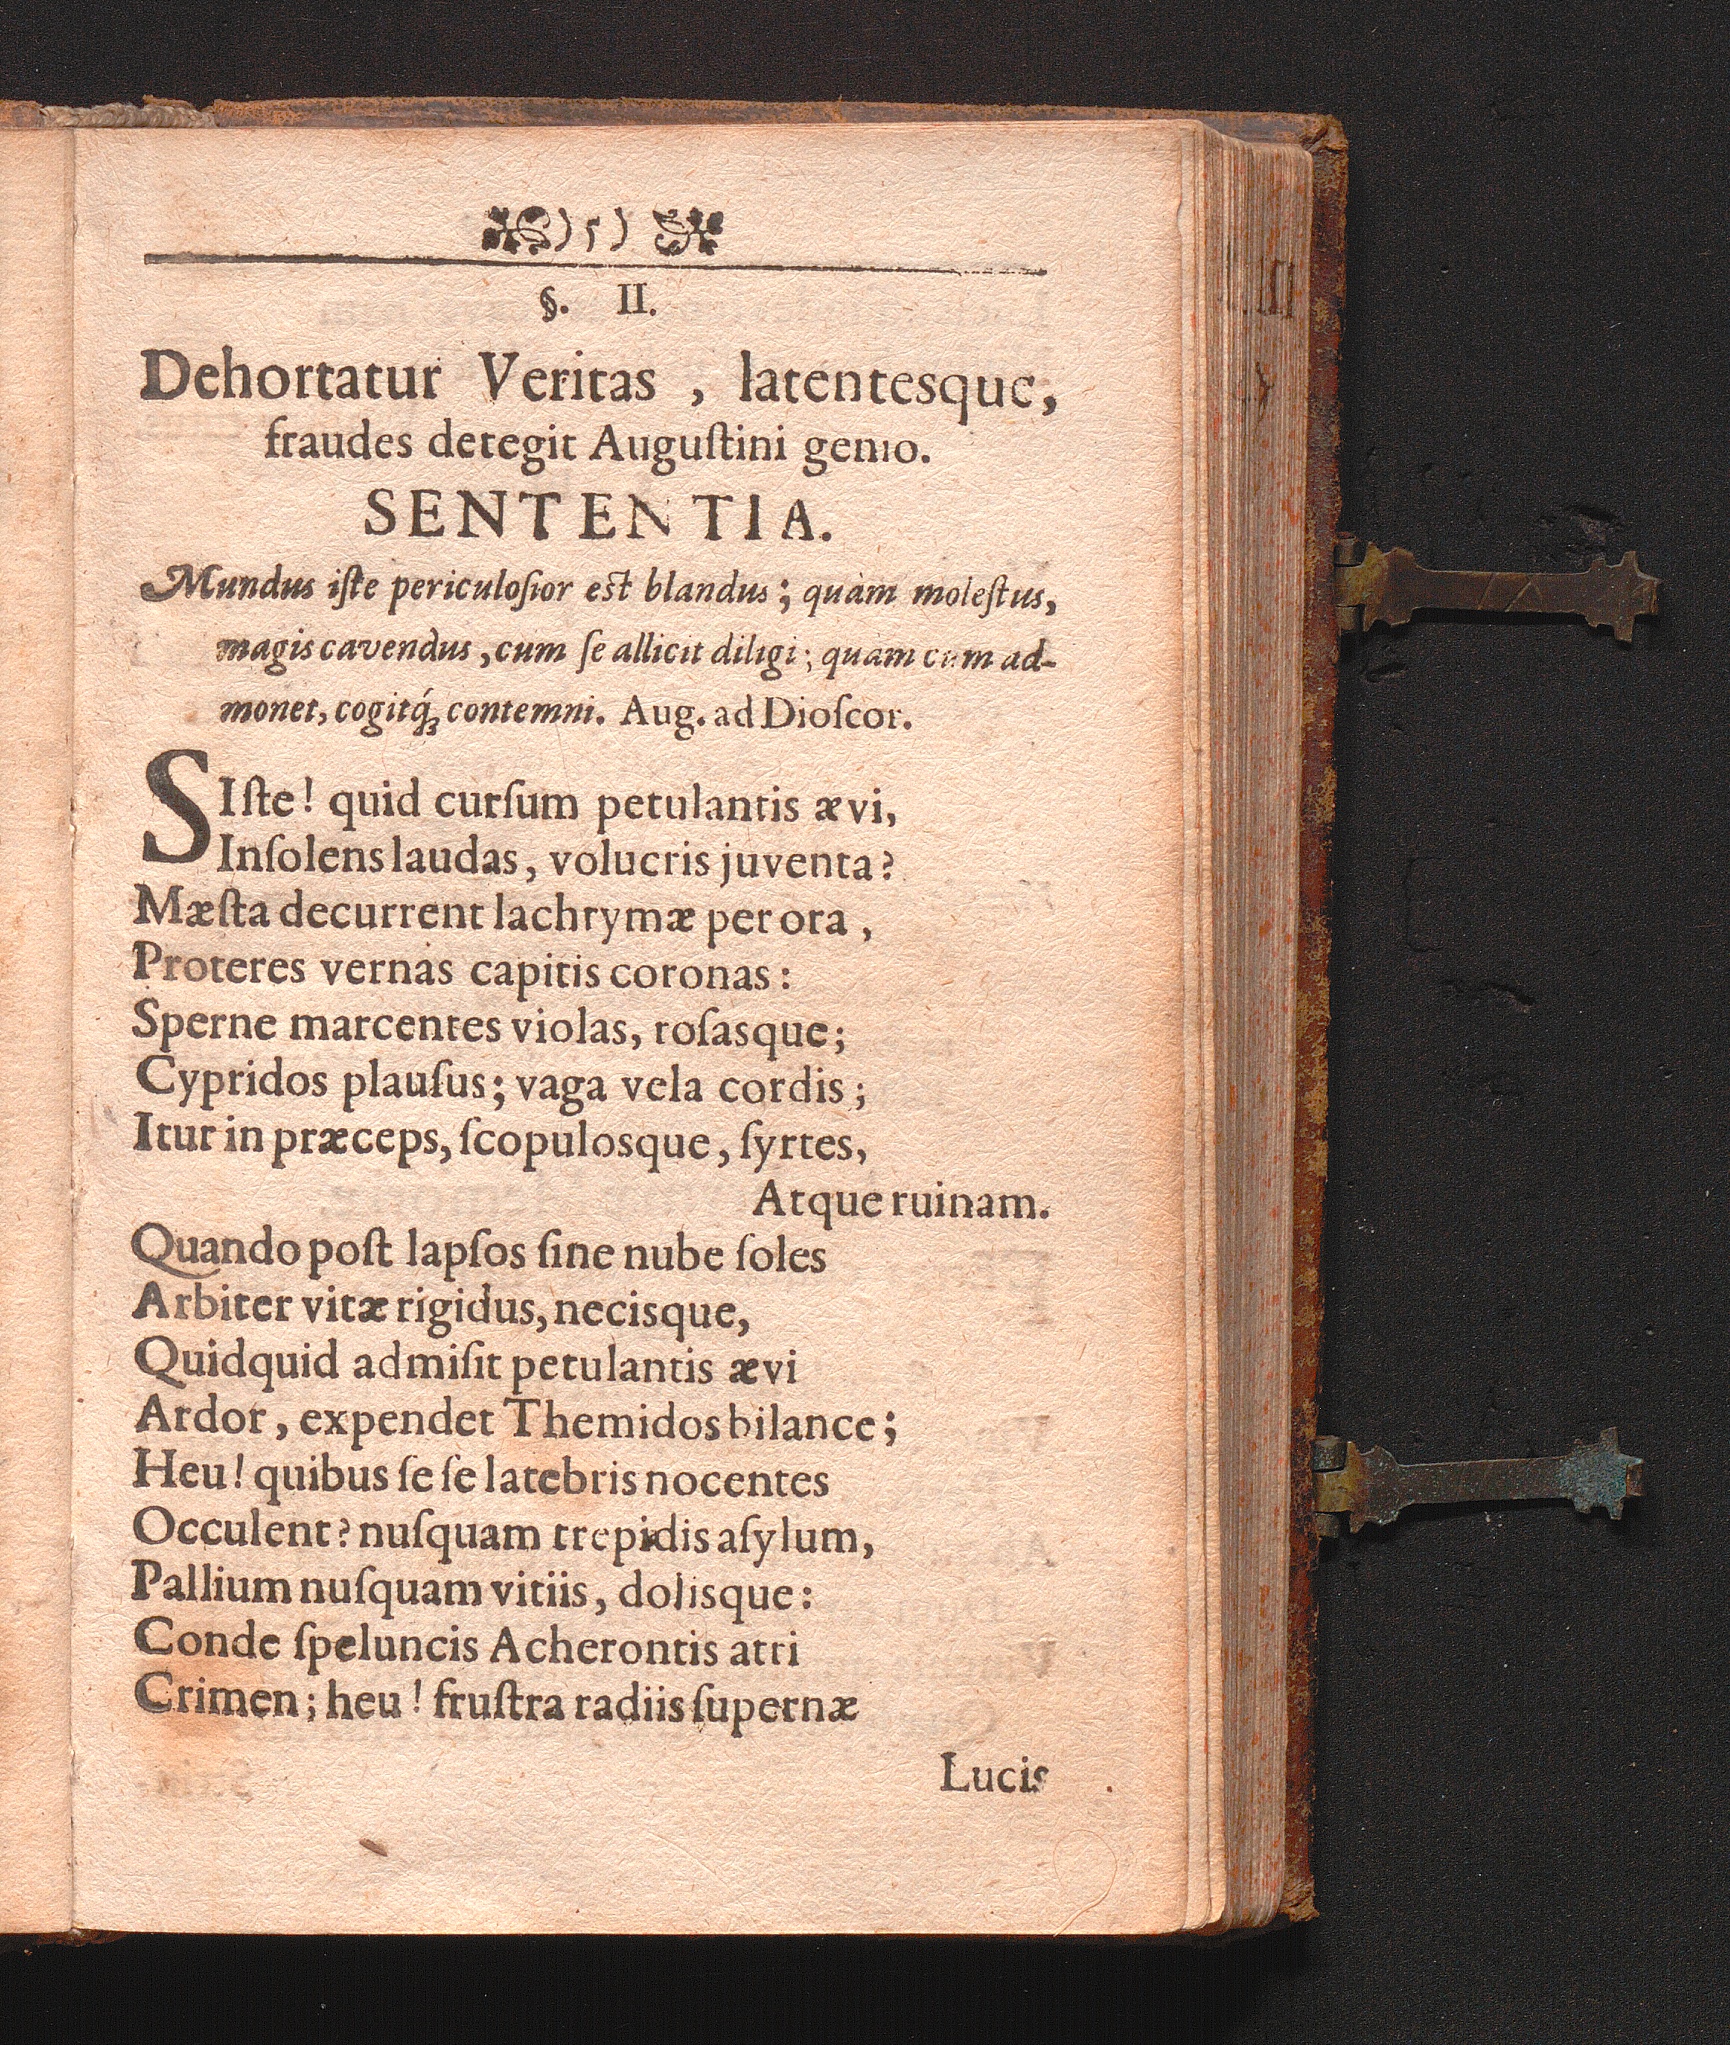 )5(
§. II.
Dehortatur Veritas , latentesque,
fraudes detegit Auguſtini genio.
SENTENTIA.
Mundus iſte periculoſior est blandus; quàm moleſtus,
magis cavendus, cum ſe allicit diligi; quàm cum ad-
monet, cogitq́ꝫ contemni. Aug. ad Dioſcor.
SIſte! quid curſum petulantis ævi,
Inſolens laudas, volucris juventa?
Mæſta decurrent lachrymæ per ora ,
Proteres vernas capitis coronas:
Sperne marcentes violas, roſasque;
Cypridos plauſus; vaga vela cordis;
Itur in præceps, ſcopulosque, ſyrtes,
Atque ruinam.
Quando poſt lapſos ſine nube ſoles
Arbiter vitæ rigidus, necisque,
Quidquid admiſit petulantis ævi
Ardor, expendet Themidos bilance;
Heu! quibus ſe ſe latebris nocentes
Occulent? nuſquam trepidis aſylum,
Pallium nuſquam vitiis, dolisque:
Conde ſpeluncis Acherontis atri
Crimen; heu! fruſtra radiis ſupernæ
Lucis